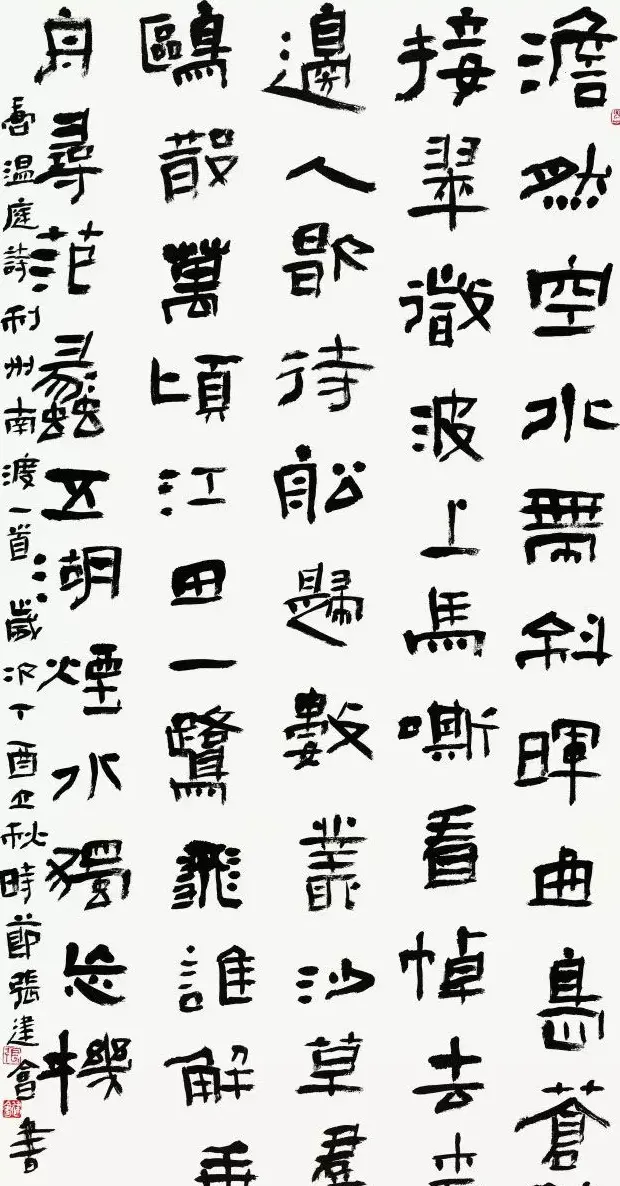 澹然空水帶斜暉曲島蒼
接翠微波上馬嘶看棹去
邊人歇待船歸數叢沙草羣
鷗散萬頃江田一鷺飛誰解乘
舟尋范蠡五湖煙水獨忘機
唐温庭詩利州南渡一首歲次丁酉立秋時節張建會書